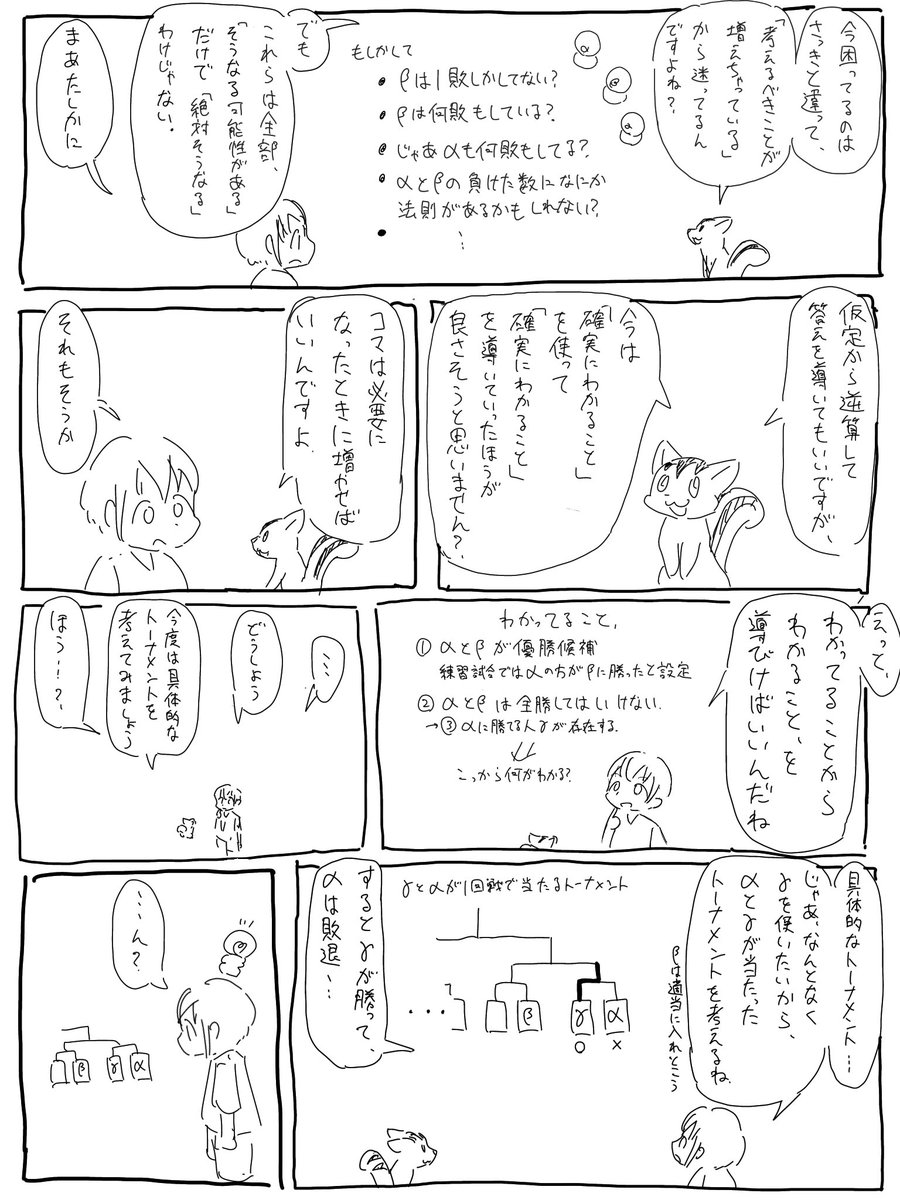 今困ってるのは
さっきと違って、
「考えるべきことが
増えちゃっている」
から迷ってるん
ですよね?
α
@
α
もしかして
● βは1敗しかしてない?
● βは何敗もしている?
● じゃあαも何敗もしてる?
● αとβの負けた数になにか
法則があるかもしれない?
● ⋮
でも
これらは全部、
「そうなる可能性がある」
だけで「絶対そうなる」
わけじゃない.
まあたしかに
仮定から逆算して
答えを導いてもいいですが、
今は
「確実にわかること」
を使って
「確実にわかること」
を導いていったほうが
良さそうと思いません?
コマは必要に
なったときに増やせば
いいんですよ.
それもそうか
えって、
わかってることから
わかること、を
導びけばいいんだね
わかってること、
① αとβが優勝候補
練習試合ではαの方がβに勝ったと設定
② αとβは全勝してはいけない.
→③αに勝てる人γが存在する.
こっから何がわかる?
…
どうしよう
今度は具体的な
トーナメントを
考えてみましょう
ほう…?
具体的なトーナメント…
じゃあ、なんとなく
γを使いたいから、
αとγが当たった
トーナメントを考えるね.
βは適当に入れとこう
γとαが1回戦で当たるトーナメント
… β γ α
○ ×
するとγが勝って、
αは敗退…
……ん?
β γ α